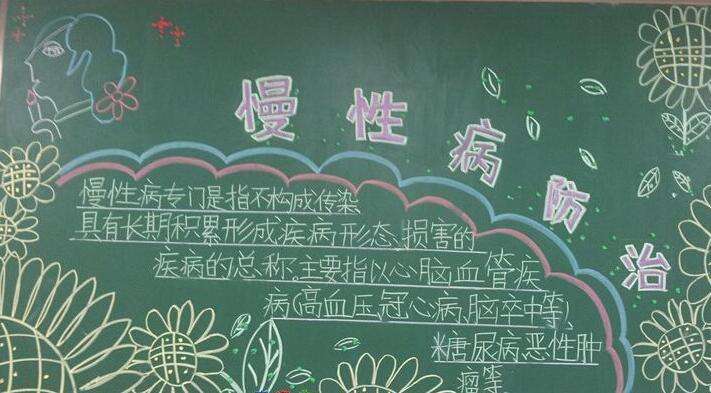 慢性病防治
慢性病专门是指不构成传染
具有长期积累形成疾病形态损害的
疾病的总称.主要指以心脑血管疾
病(高血压,冠心病,脑卒中等)
糖尿病恶性肿
瘤等